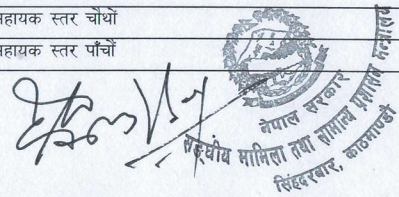 सहायक स्तर चौथो
सहायक स्तर पाँचौं
नेपाल सरकार
सङ्घीय मामिला तथा सामान्य प्रशासन मन्त्रालय
सिंहदरबार, काठमाण्डौ